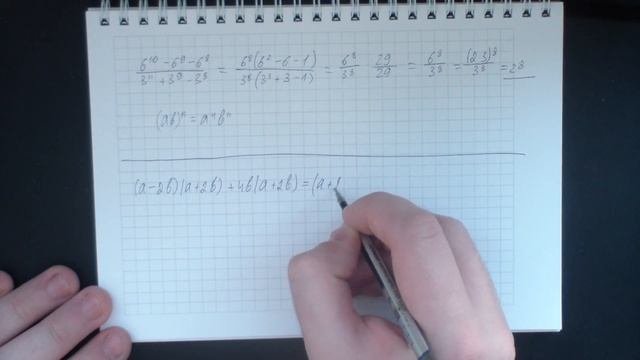 (6¹⁰ - 6⁹ - 6⁸)/(3¹¹ + 3⁹ - 3⁸) = 6⁸(6² - 6 - 1)/3⁸(3³ + 3 - 1) = 6⁸/3⁸ 29/29 = 6⁸/3⁸ = (2·3)⁸/3⁸ = 2⁸
(ab)ⁿ = aⁿbⁿ
(a-2b)(a+2b) + 4b(a+2b) = (a+